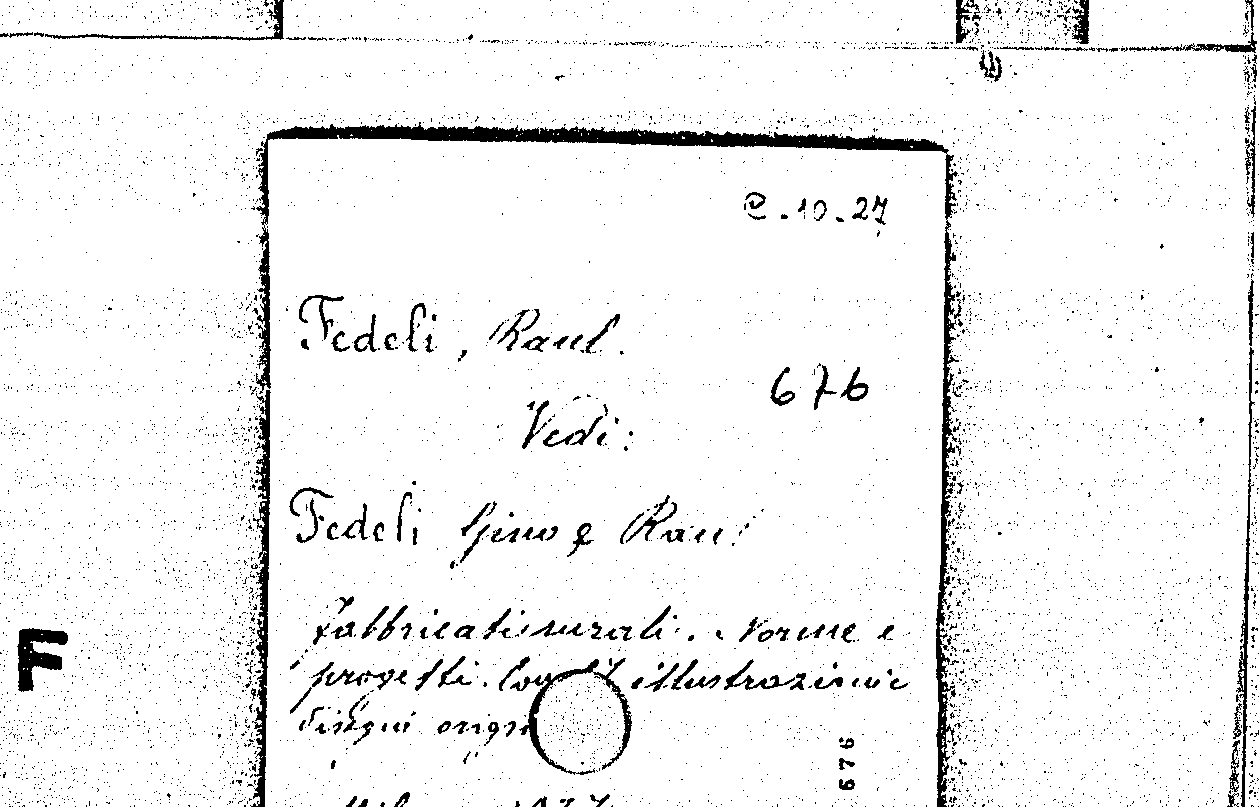 C.-10.-27
Fedeli, Raul.
676
Vedi:
Fedeli Gino e Raul
Fabbricati rurali. Norme e
progetti. illustrazioni e
disegni
F
676